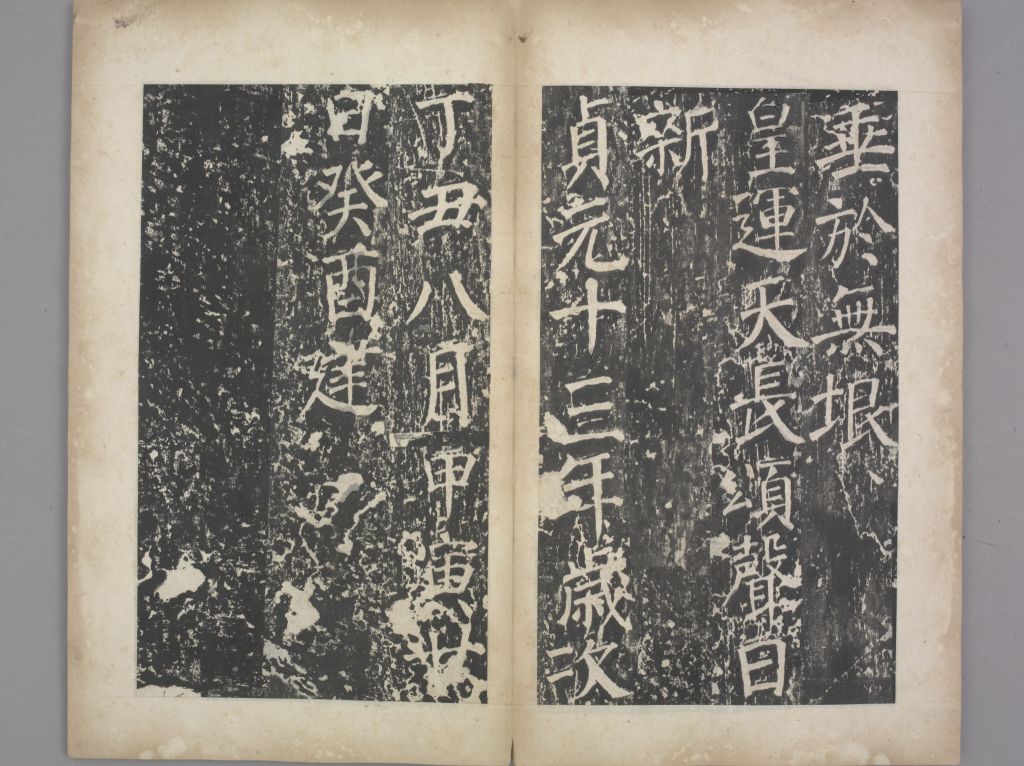 垂於無垠
皇運天長頌聲日
新
貞元十三年歲次
丁丑八月甲寅廿
日癸酉建